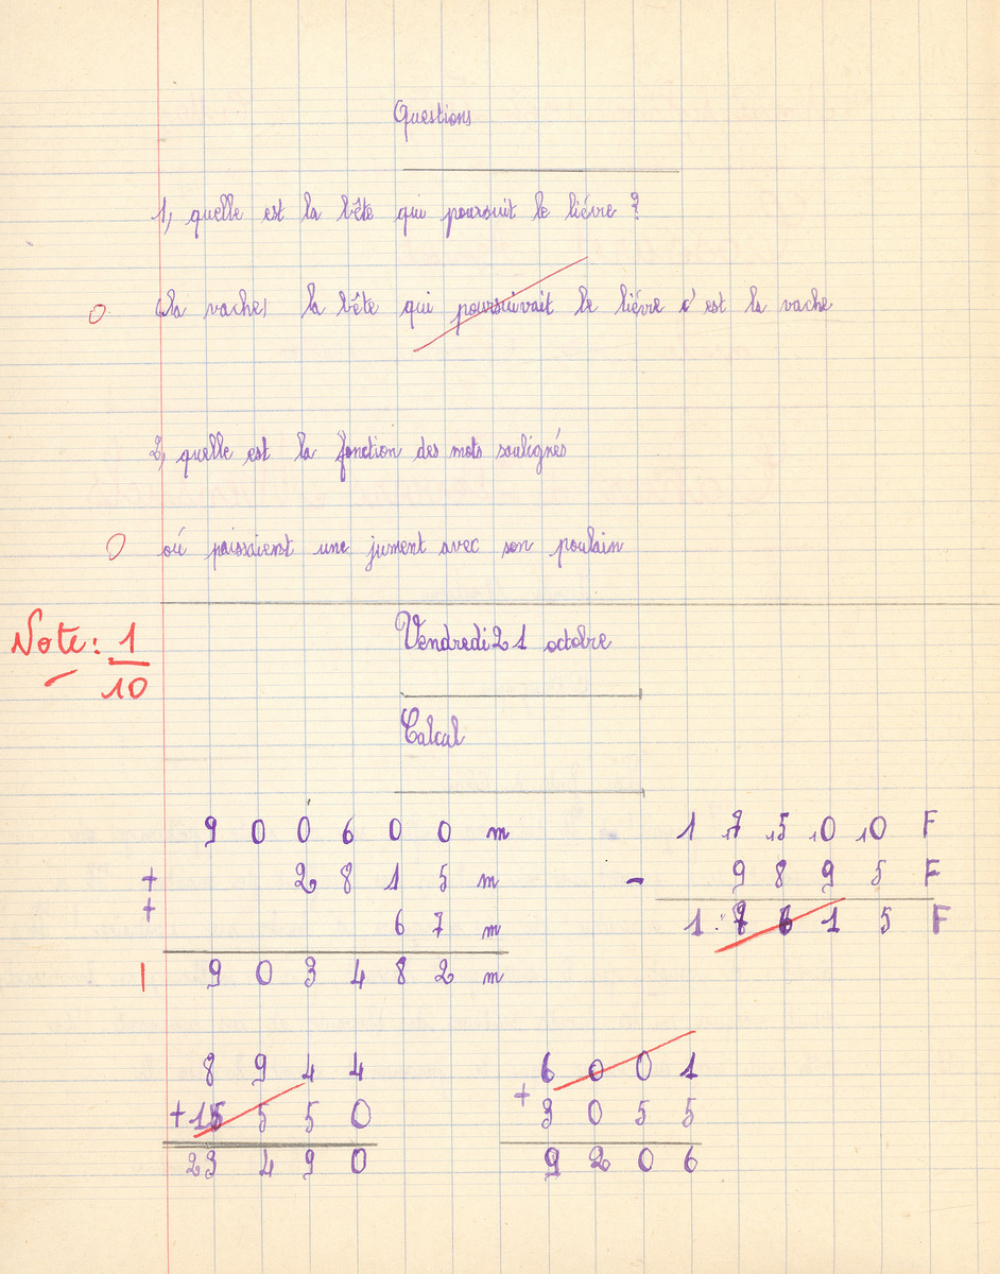 Questions
1, quelle est la bête qui poursuit le liévre ?
0 (la vache) la bête qui poursuivait le liévre c'est la vache
2, quelle est la fonction des mots soulignés
0 où paissaient une jument avec son poulain
Note : 1/10
Vendredi 21 octobre
Calcul
900600 m
+ 2815 m
+ 67 m
1 903482 m
17500 F
- 9895 F
1 7615 F
8944
+ 15550
23490
6001
+ 3055
9206